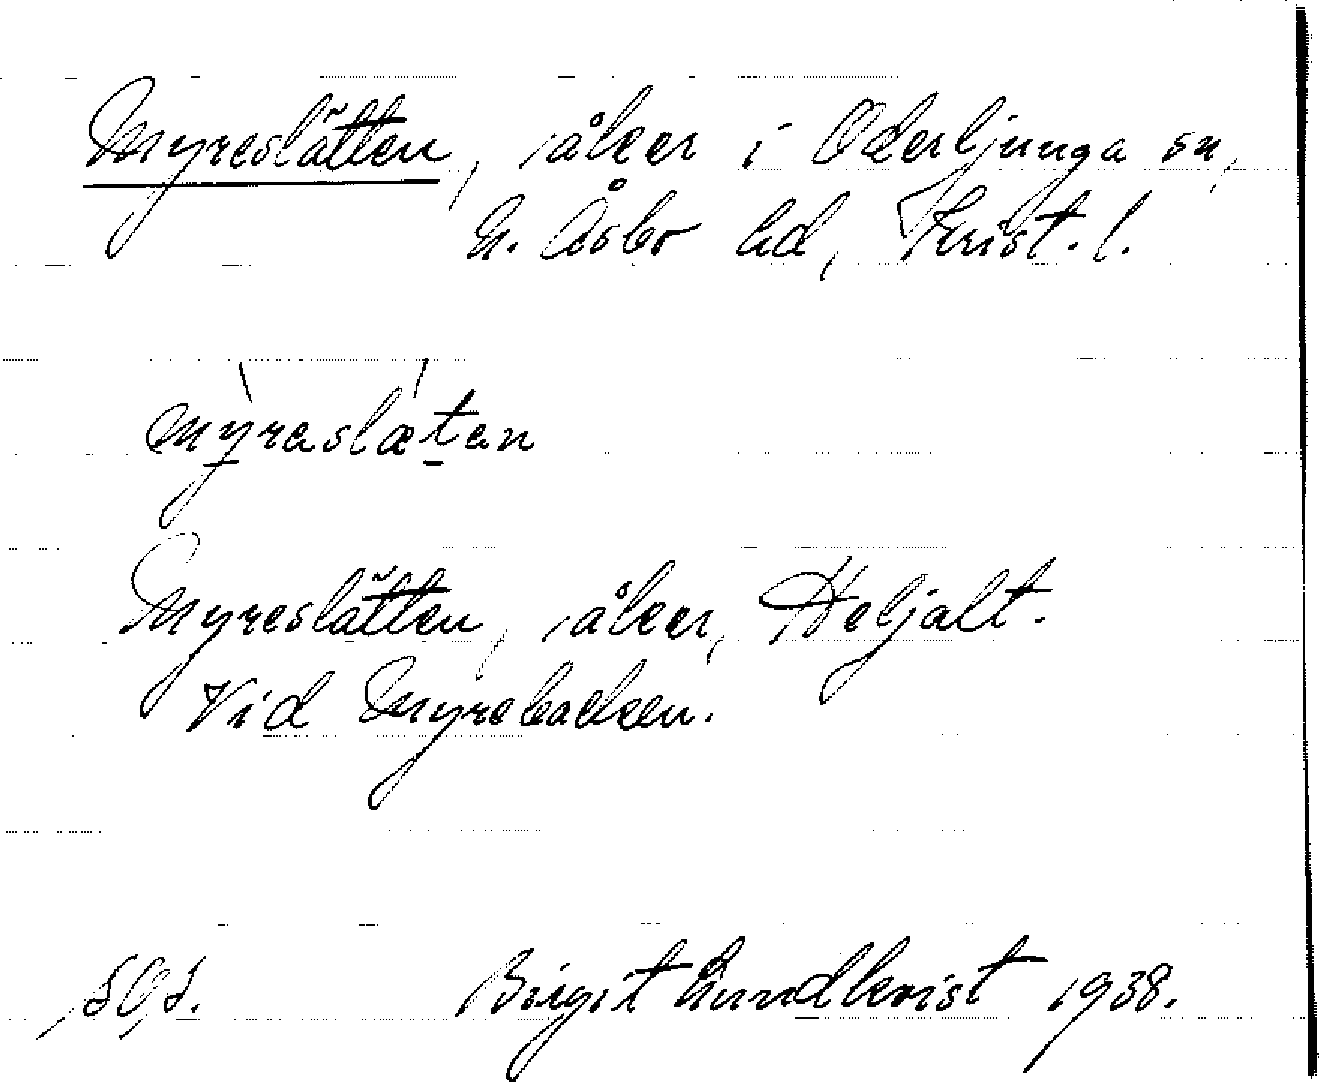 Myreslätten, åker i Oderljunga sn,
N. Åsbo hd, Krist. l.
my̱raslæṯan
Myreslätten, åker, Heljalt.
Vid Myrebacken.
Birgit Lundkvist 1938.